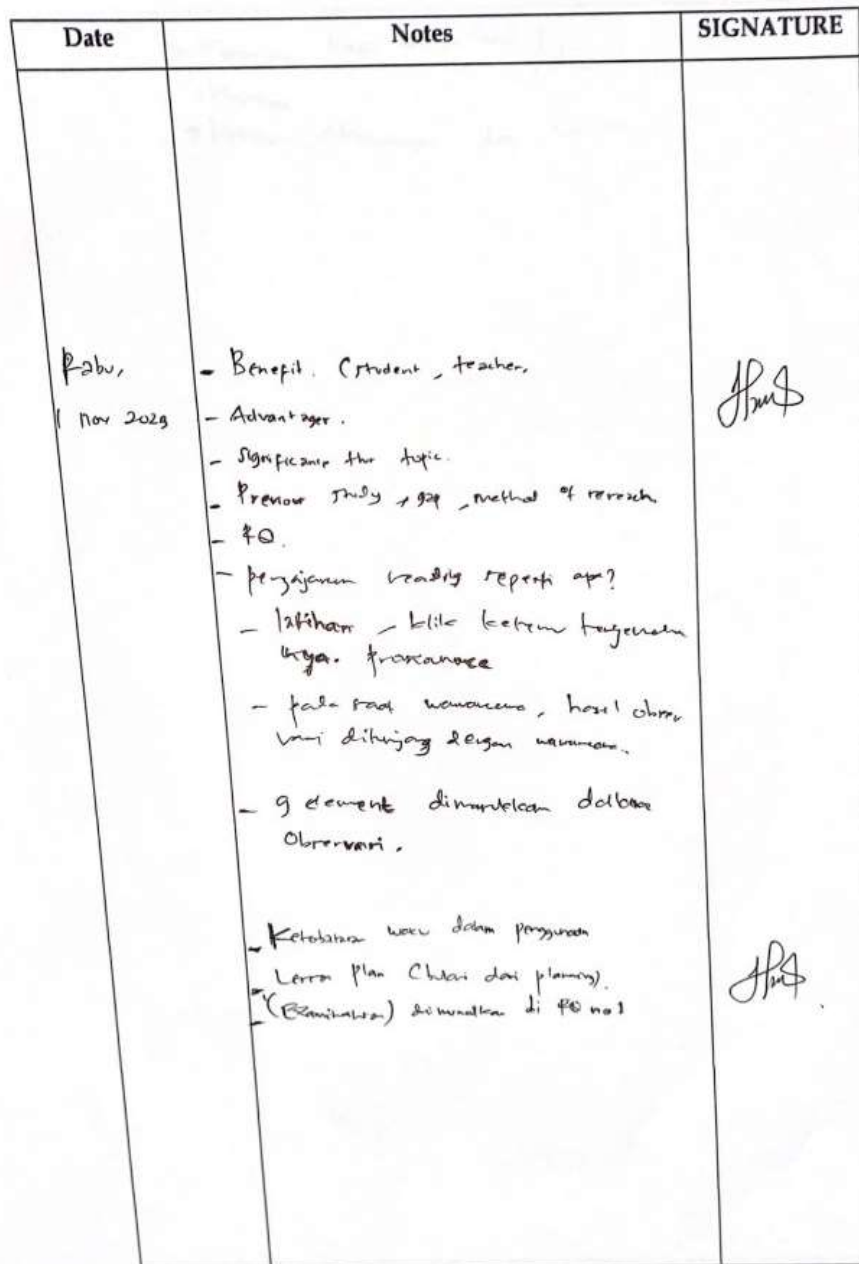 Date Notes SIGNATURE
Rabu, - Benefit. (student, teacher.
1 nov 2023 - Advantages.
- Significance the topic.
- Previous study + gap, method of research.
- RQ.
- pengajaran reading seperti apa?
- latihan - klik
- pada saat wawancara, hasil obser
vasi ditunjang dengan wawancara.
- 9 element dimasukkan
Observasi.
- Keterbatasan waktu dalam penggunaan
- Lesson Plan (Mulai dari planning).
- (Examination) dimunculkan di RQ no 1